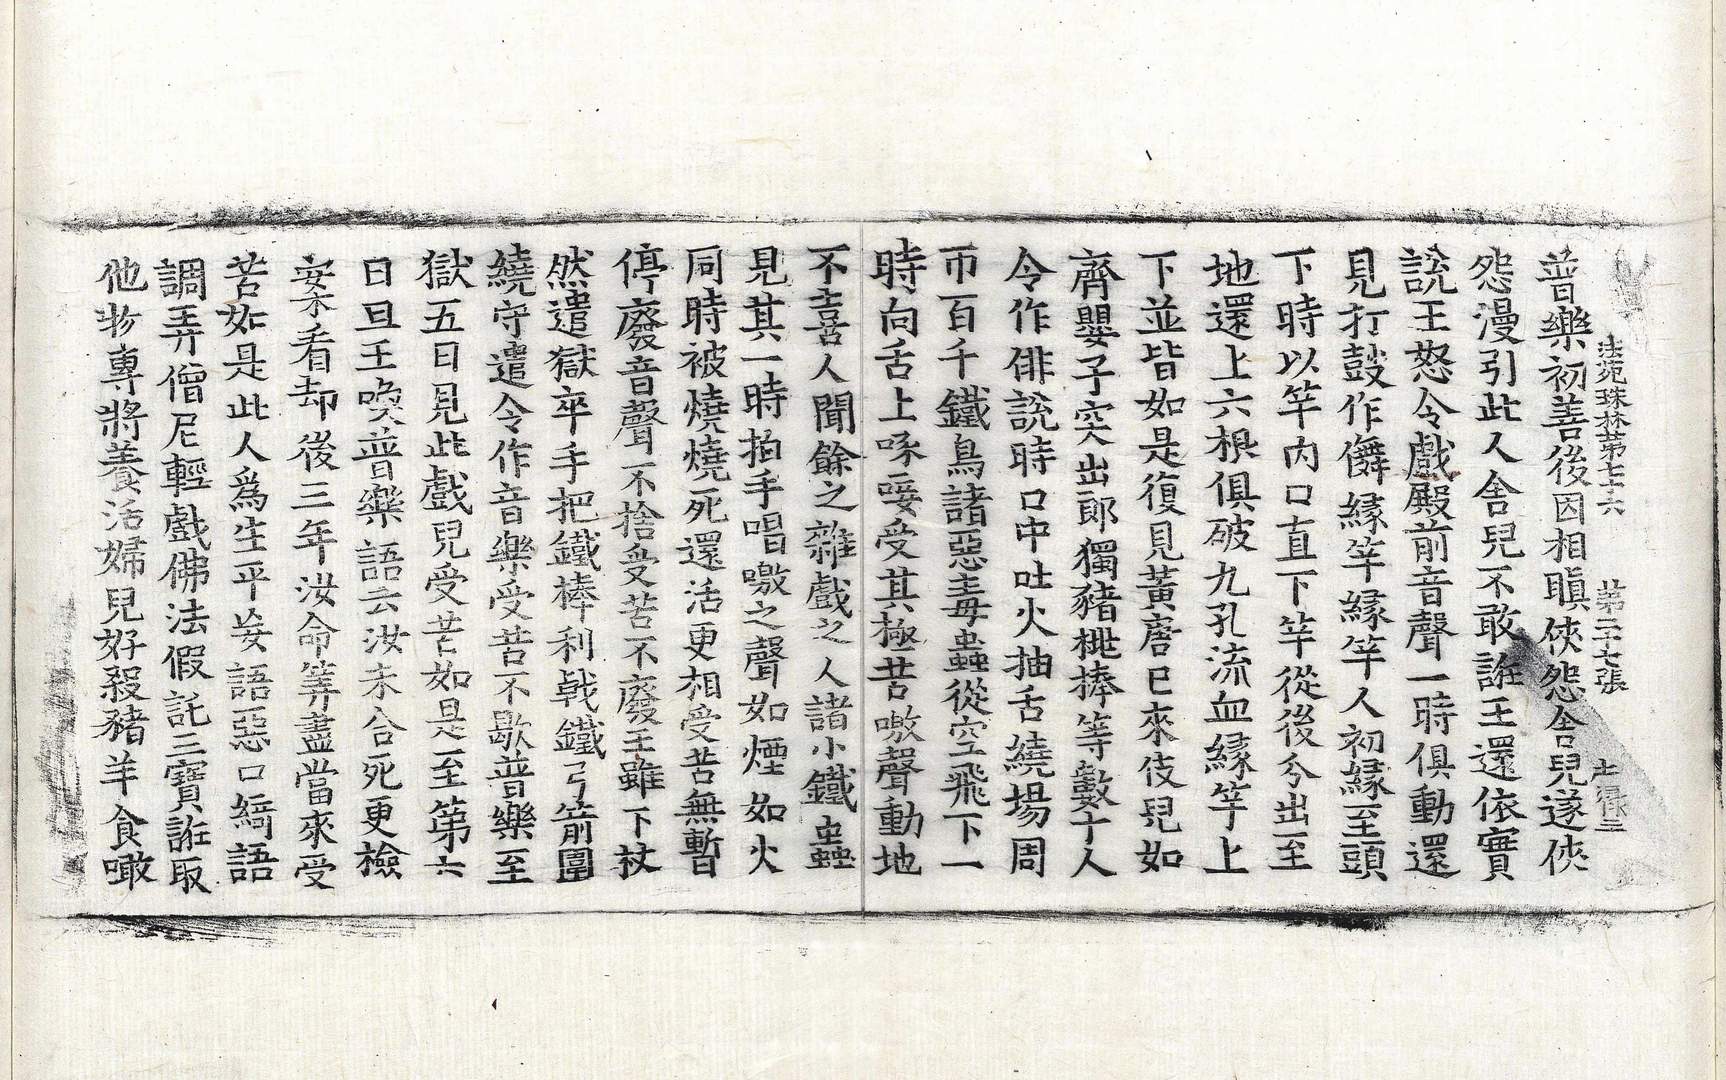 法苑珠林第七十六 第二十七張
普樂初善後因相瞋俠怨舍兒遂俠
怨漫引此人舍兒不敢誑王還依實
說王怒令戲殿前音聲一時俱動還
見打鼓作儛緣竿緣竿人初緣至頭
下時以竿內口直下竿從後分出至
地還上六根俱破九孔流血緣竿上
下並皆如是復見黃唐已來伎兒如
齊嬰子突出郎獨豬桃捧等數十人
令作俳說時口中吐火抽舌繞場周
帀百千鐵鳥諸惡毒蟲從空飛下一
時向舌上啄唼受其極苦噭聲動地
不喜人聞餘之雜戲之人諸小鐵蟲
見其一時拍手唱噭之聲如煙如火
同時被燒燒死還活更相受苦無暫
停廢音聲不捨受苦不廢王雖下杖
然遣獄卒手把鐵棒利戟鐵弓箭圍
繞守遣令作音樂受苦不歇普樂至
獄五日見此戲兒受苦如是至第六
日旦王喚普樂語云汝未合死更檢
案看却後三年汝命筭盡當來受
苦如是此人為生平妄語惡口綺語
調弄僧尼輕戲佛法假託三寶誑取
他物專將養活婦兒好殺豬羊食噉